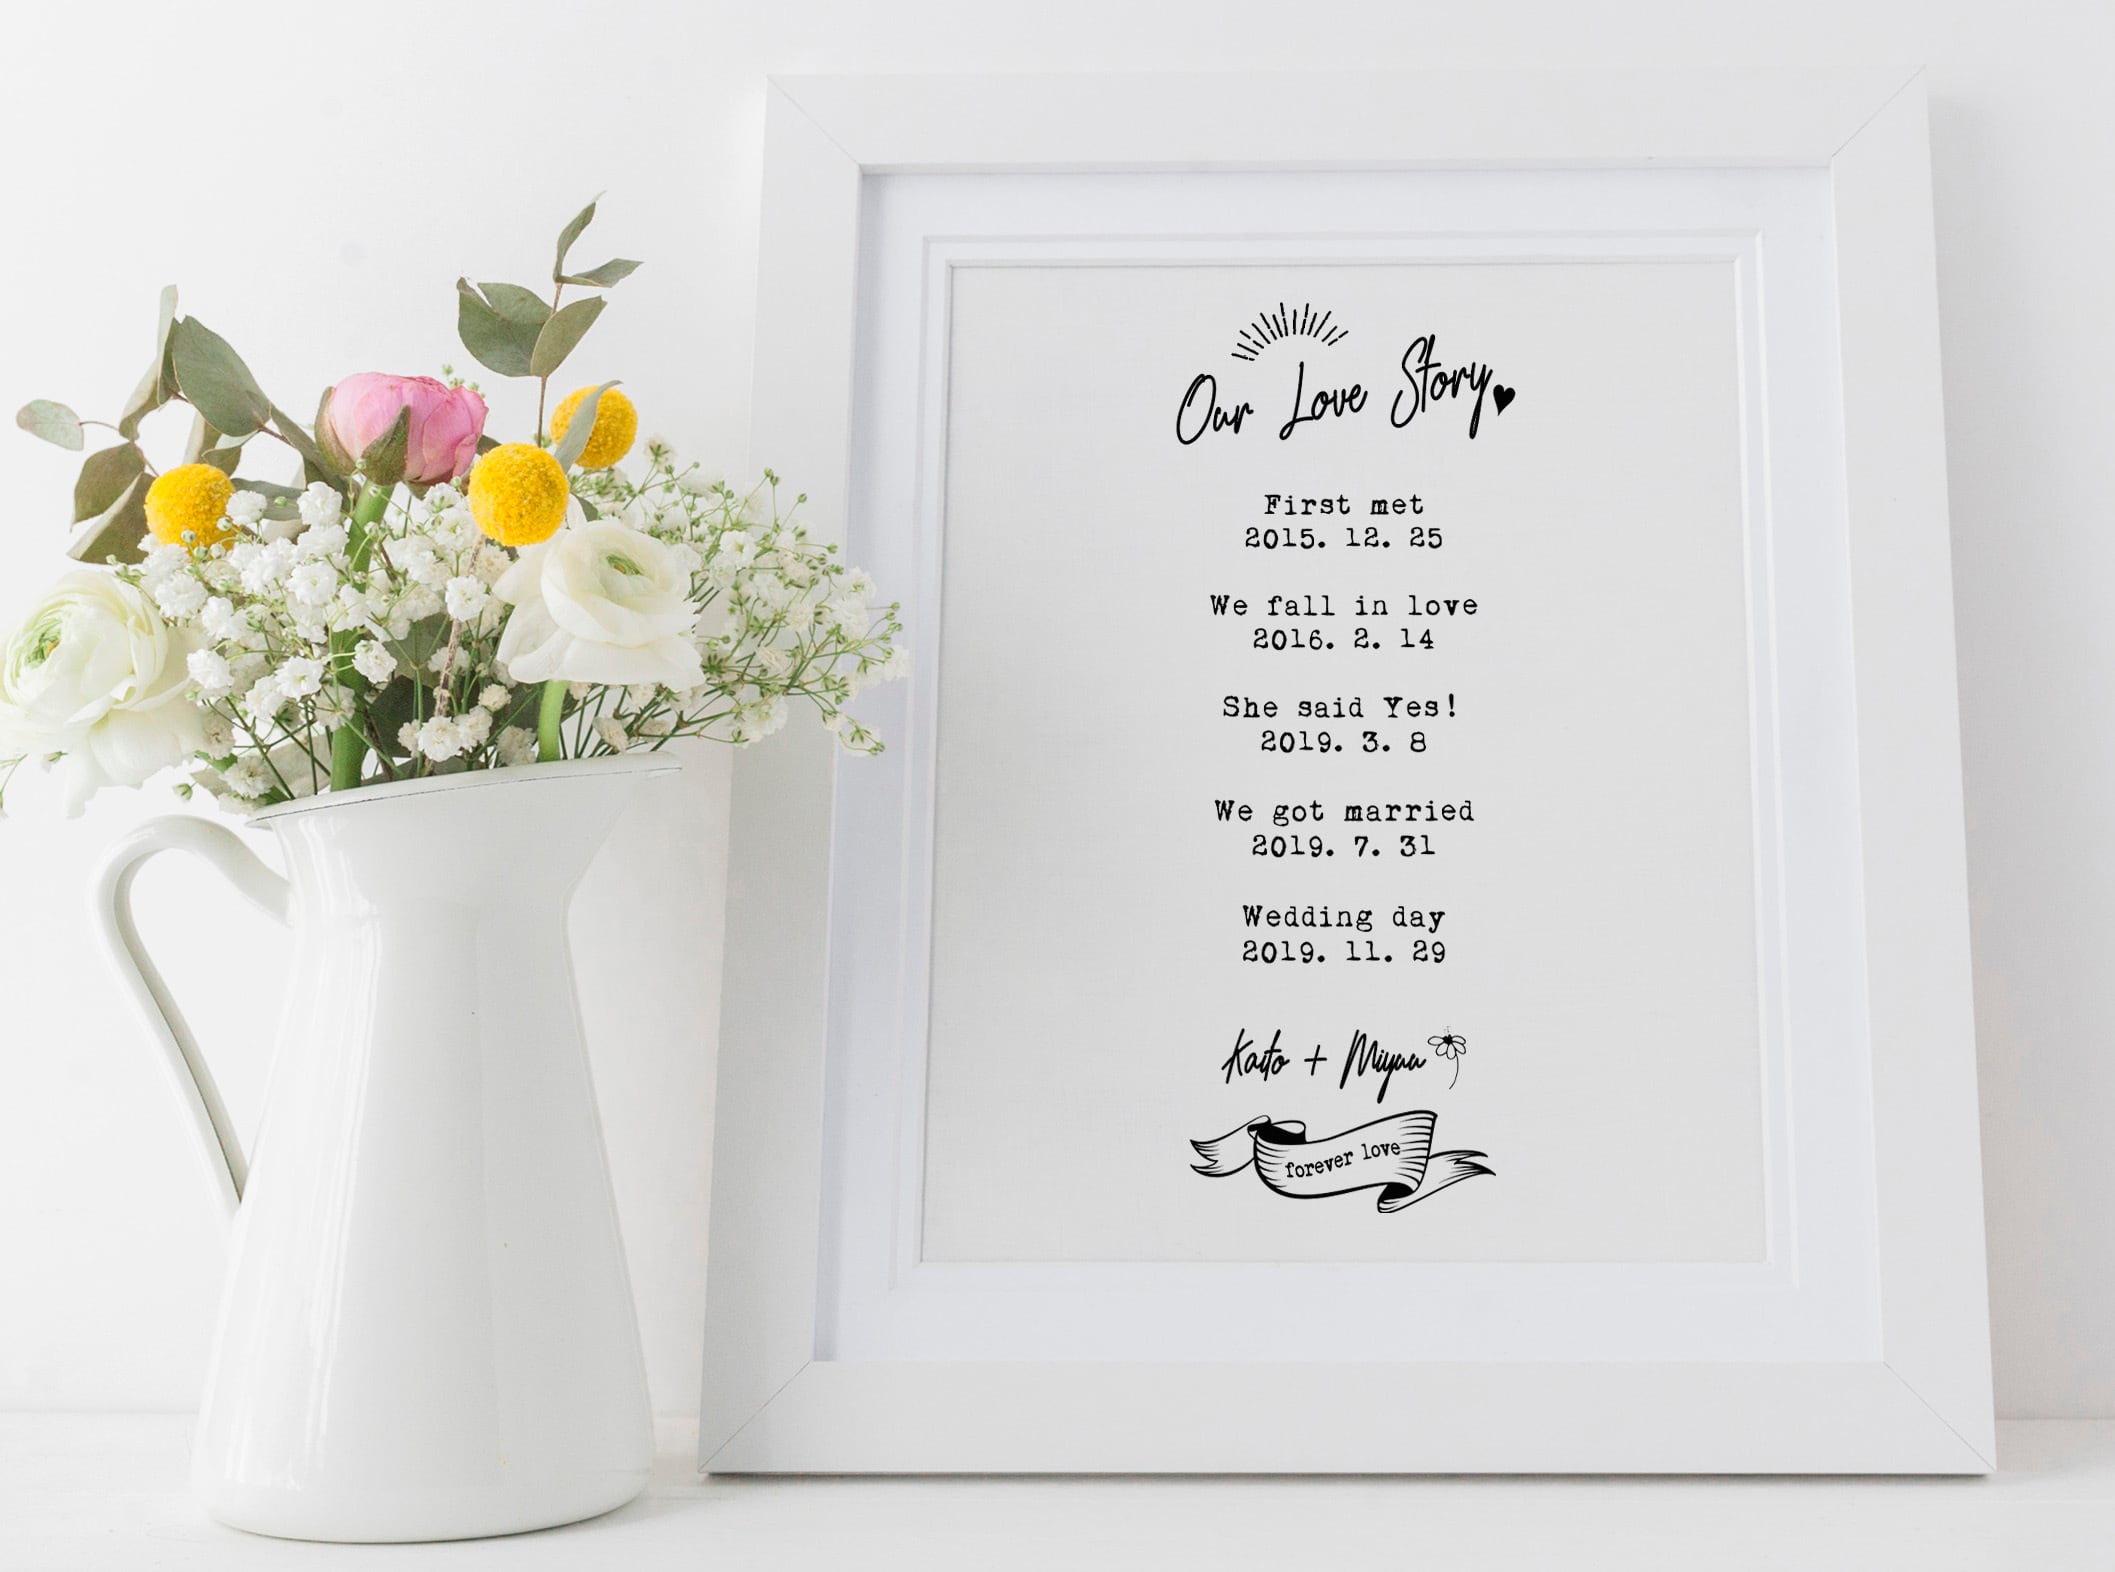 Our Love Story
First met
2015. 12. 25
We fall in love
2016. 2. 14
She said Yes!
2019. 3. 8
We got married
2019. 7. 31
Wedding day
2019. 11. 29
Kaito + Miyuu
forever love